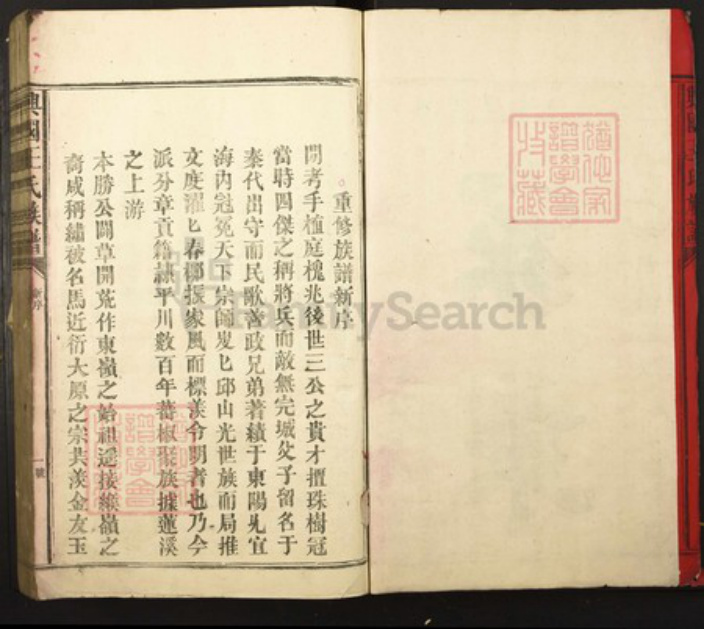 重修族譜新序
閒考手植庭槐兆後世三公之貴才擅珠樹冠
當時四傑之稱將兵而敵無完城父子留名于
秦代出守而民歌善政兄弟著績于東陽九宜
海內冠冕天下宗師叟匕邱山光世族而局推
文度濯匕春柳振家風而標羨令明者也乃今
派分章貢籍隸平川數百年蕃椒聚族據蓮溪
之上游
本勝公闢草開荒作東嶺之始祖遥接緱嶺之
裔咸稱繡裓名馬近衍大原之宗共羨金友玉
興國王氏族譜
新序
一號
譜學會
收藏
FamilySearch